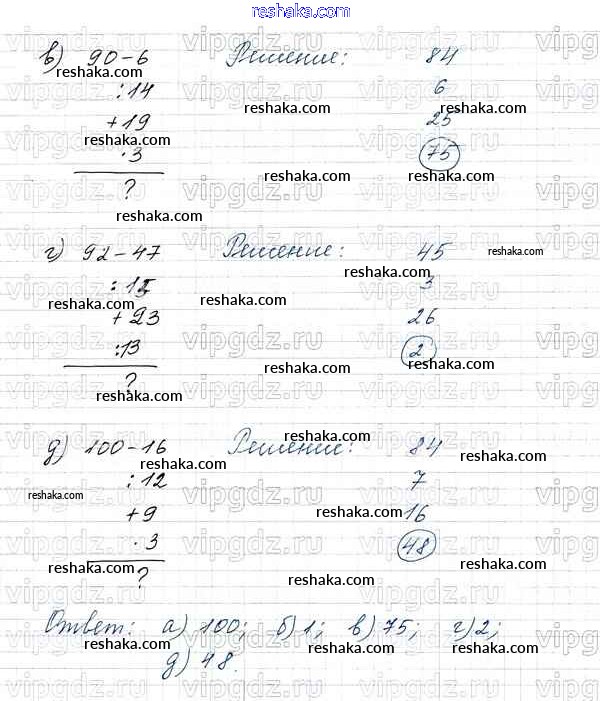 reshaka.com
в) 90-6 Решение: 84
:14 6
+19 25
·3 75
?
г) 92-47 Решение: 45
:15 3
+23 26
:13 2
?
д) 100-16 Решение: 84
:12 7
+9 16
·3 48
?
Ответ: а) 100; б) 1; в) 75; г) 2;
д) 48.